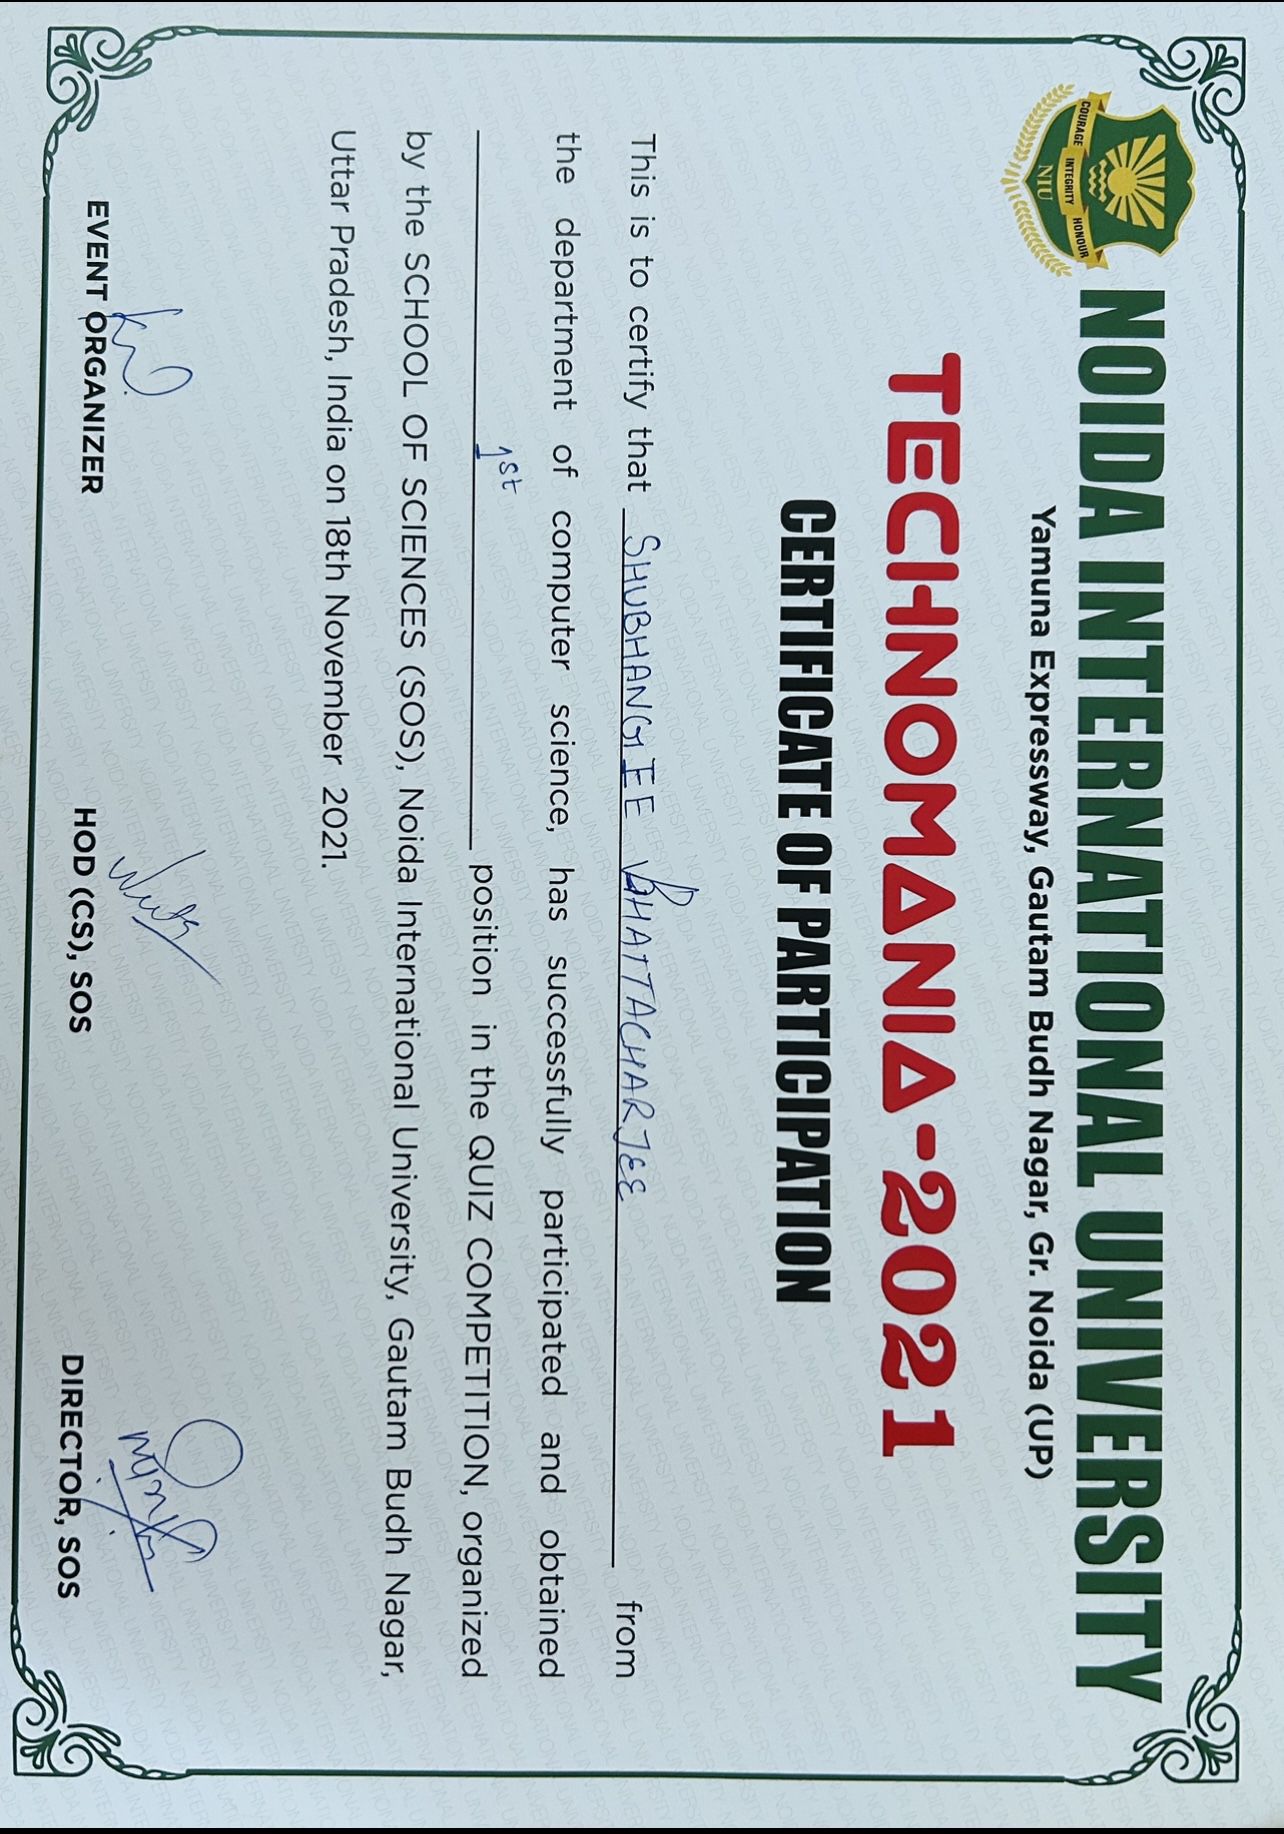 NOIDA INTERNATIONAL UNIVERSITY
COURAGE INTEGRITY HONOUR
NIU
Yamuna Expressway, Gautam Budh Nagar, Gr. Noida (UP)
TECHNOMANIA-2021
CERTIFICATE OF PARTICIPATION
This is to certify that SHUBHANGIEE BHATTACHARJEE from
the department of computer science, has successfully participated and obtained
1st position in the QUIZ COMPETITION, organized
by the SCHOOL OF SCIENCES (SOS), Noida International University, Gautam Budh Nagar,
Uttar Pradesh, India on 18th November 2021.
EVENT ORGANIZER HOD (CS), SOS DIRECTOR, SOS